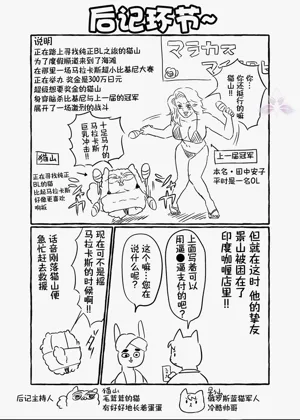 后记环节~
说明
正在路上寻找纯正BL之缘的猫山
为了度假顺道来到了海滩
在那里一场马拉卡斯超小比基尼大赛
正在举办 奖金是300万日元
超级想要奖金的猫山
身穿脑杀比基尼与上一届的冠军
展开了一场激烈的战斗
マラカス
你…
你还挺行的嘛
猫山!!
上一届冠军
本名·田中安子
平时是一名OL
十足马力的
马拉卡斯
巨乳冲击!!
猫山
正在寻找纯正
BL的猫
比起马拉卡斯
好像更喜欢
响板
但就在这时 他的挚友
景山被困在了
印度咖喱店里!!
上面写着可以
用逼●逼支付的吧?
这个嘛…您在
说什么呢?
现在可不是摇
马拉卡斯的时候啊!!
话音刚落猫山便
急忙赶去救援
后记主持人
猫山
毛茸茸的猫
有好好地长着蛋蛋
俄罗斯蓝猫军人
冷酷帅哥